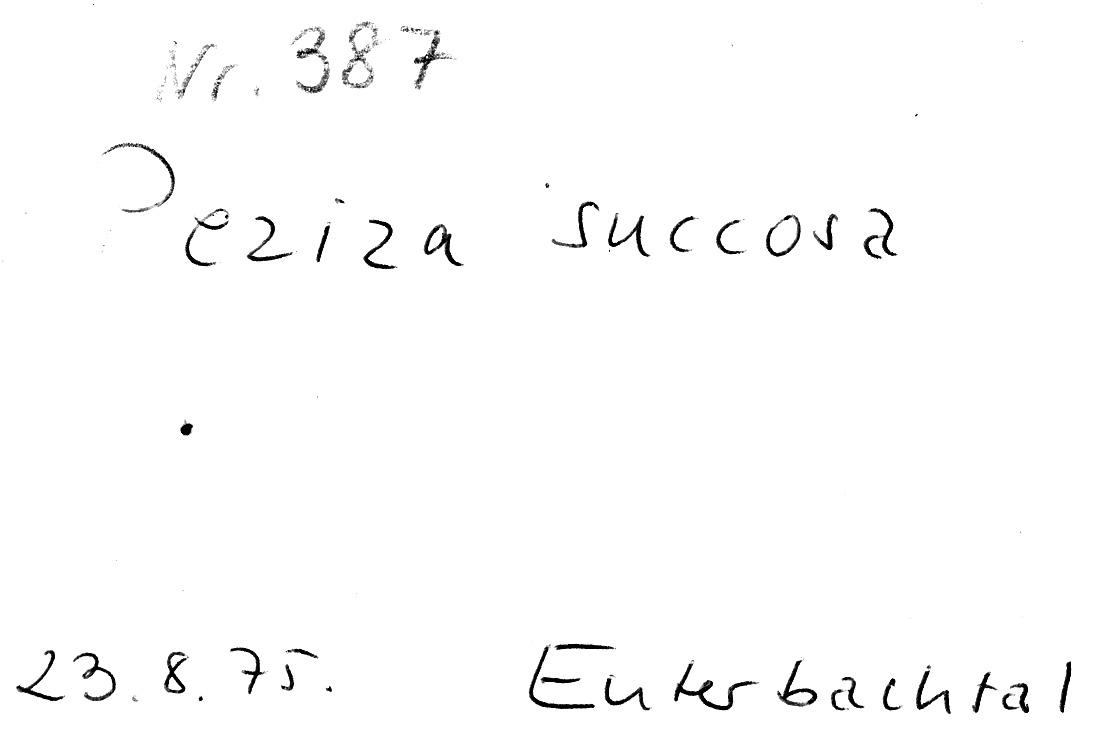 Nr. 387
Peziza succosa
23.8.75. Euterbachtal